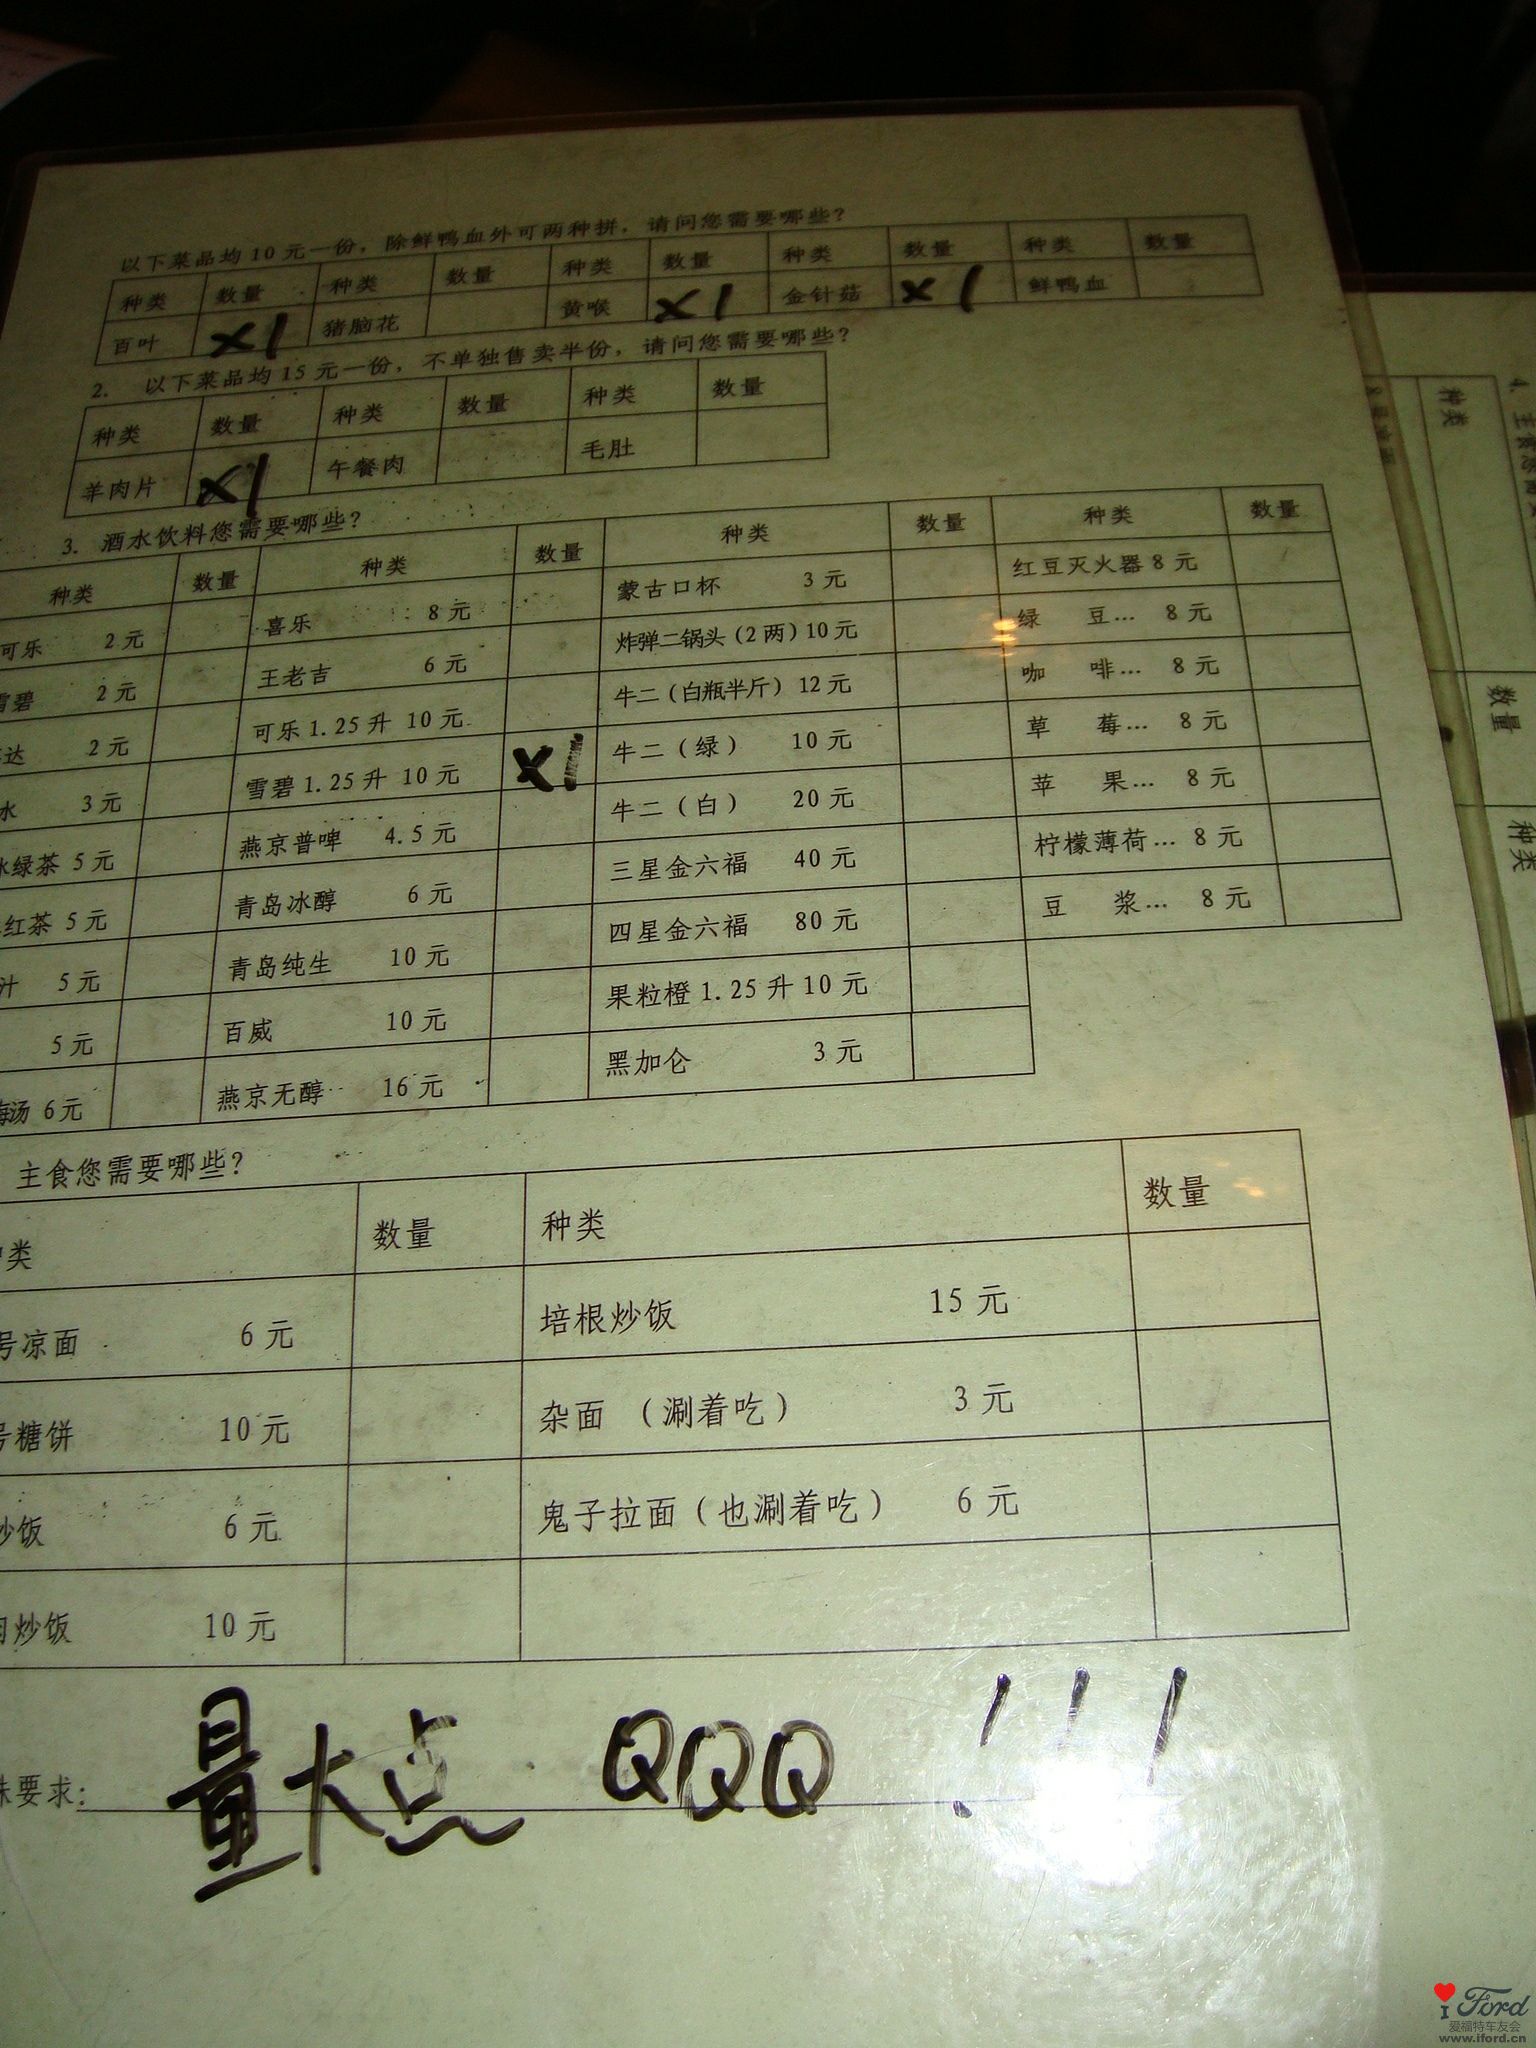 以下菜品均10元一份，除鲜鸭血外可两种拼，请问您需要哪些？
种类 数量 种类 数量 种类 数量 种类 数量 种类 数量
百叶 x1 猪脑花 黄喉 x1 金针菇 x1 鲜鸭血
2. 以下菜品均15元一份，不单独售卖半份，请问您需要哪些？
种类 数量 种类 数量 种类 数量
羊肉片 x1 午餐肉 毛肚
3. 酒水饮料您需要哪些？
种类 数量 种类 数量 种类 数量 种类 数量
可乐 2元 喜乐 8元 蒙古口杯 3元 红豆灭火器8元
雪碧 2元 王老吉 6元 炸弹二锅头（2两）10元 绿豆… 8元
达 2元 可乐1.25升 10元 牛二（白瓶半斤）12元 咖啡… 8元
水 3元 雪碧1.25升 10元 x1 牛二（绿） 10元 草莓… 8元
冰绿茶 5元 燕京普啤 4.5元 牛二（白） 20元 苹果… 8元
红茶 5元 青岛冰醇 6元 三星金六福 40元 柠檬薄荷… 8元
汁 5元 青岛纯生 10元 四星金六福 80元 豆浆… 8元
5元 百威 10元 果粒橙1.25升10元
梅汤 6元 燕京无醇 16元 黑加仑 3元
主食您需要哪些？
种类 数量 种类 数量
号凉面 6元 培根炒饭 15元
号糖饼 10元 杂面（涮着吃） 3元
炒饭 6元 鬼子拉面（也涮着吃） 6元
炒饭 10元
殊要求： 量大点 QQQ !!!
4. 主食您需要
种类
数量
种类
I Ford
爱福特车友会
www.iford.cn